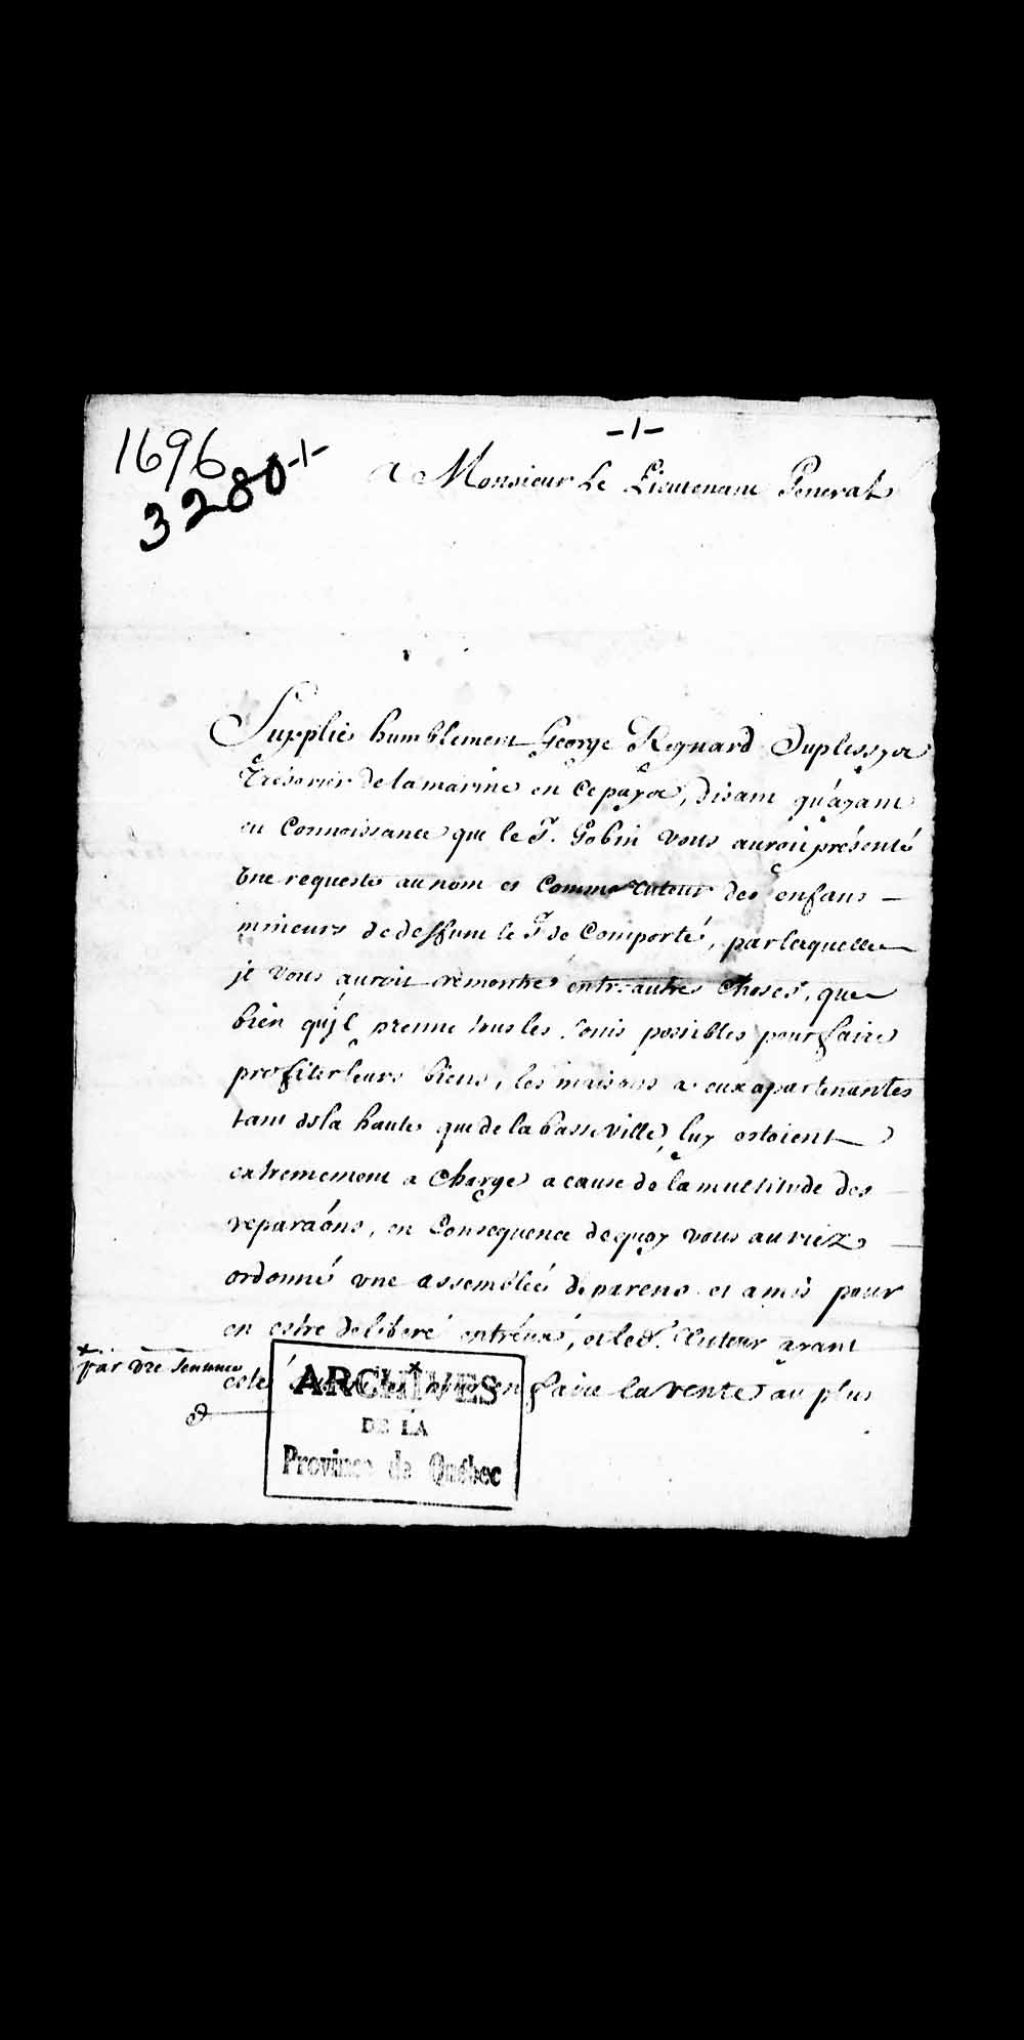 -1-
1696
3280-1-
A Monsieur Le Lieutenant General
Supplie humblement George Regnard Duplessys
Trésorier de la marine en ce pays, disant qu'ayant
eu Connoissance que le S. Gobin vous auroit présenté
une requeste au nom et comme tuteur des enfans
mineurs de deffunt le S de Comporté, par laquelle
je vous auroit remontré entr'autres choses, que
bien qu'jl prenne tous les soins possibles pour faire
profiter leurs biens, les maisons a eux apartenantes
tant dela haute que de la basse ville, luy estoient
extremement a charge a cause de la multitude des
reparaõns, en Consequence dequoy vous auriez
ordonné une assemblée de parens et amis pour
en estre deliberé entr'eux, et led. Tuteur ayant
+ par vre sentence
esté en faire la vente au plus
ARCHIVES
DE LA
Province de Québec